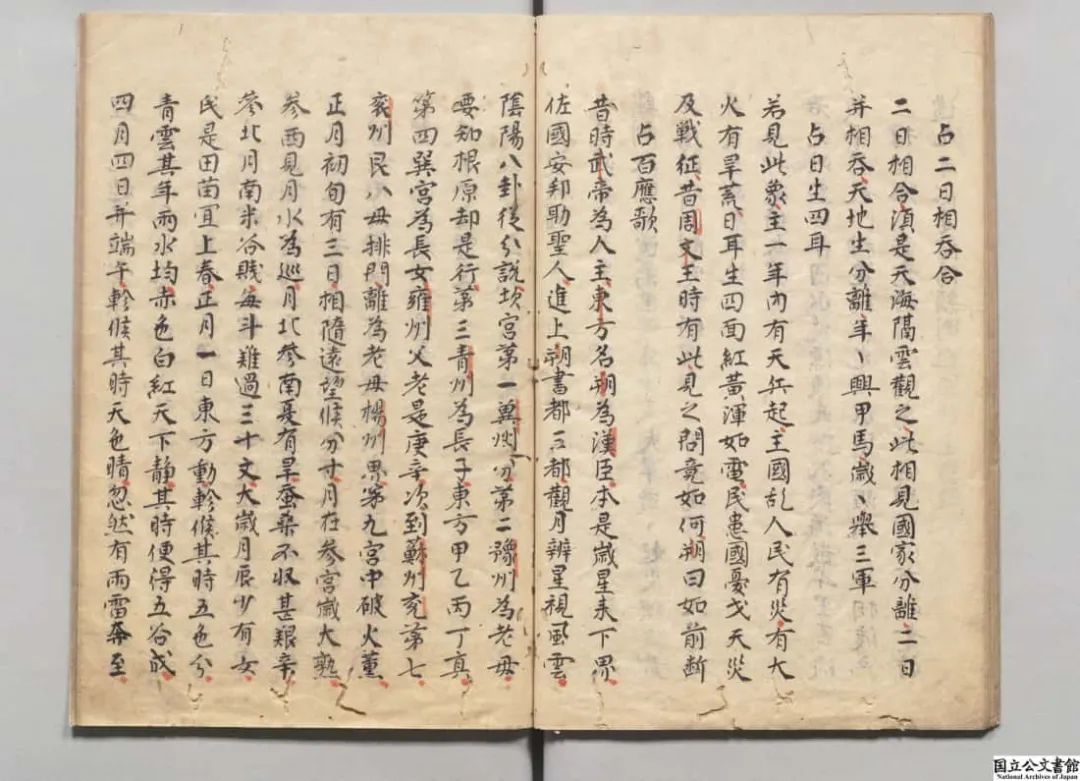 占二日相吞合
二日相合湏是天海隔雲觀之此相見國家分離二日
并相吞天地生分離年〻興甲馬歲〻舉三軍
占日生四耳
若見此象主一年內有天兵起主國乱人民有災有大
火有旱荒日耳生四面紅黃渾如電民患國憂戈天災
及戰征昔周文王時有此見之問竟如何朔曰如前斷
占百應歌
昔時武帝為人主東方名朔為漢臣本是歲星来下界
佐國安邦助聖人進上朔書都三都觀月辨星視風雲
陰陽八卦後分說坎宮第一冀州分第二豫州為老母
要知根原却是行第三青州為長子東方甲乙丙丁真
第四巽宮為長女雍州父老是庚辛次到蘇州兗第七
兗州艮八毋排門離為老毋楊州界第九宮中破火薰
正月初旬有三日相隨遠望候分寸月在參宮歲大熟
參西見月水為巡月北參南憂有旱蚕桑不収甚艱辛
參北月南米谷賎每斗難過三十文大歲月辰少有女
民是田苗宜上春正月一日東方動軫候其時五色分
青雲其年雨水均赤色白紅天下静其時便得五谷成
四月四日并端午軫候其時天色晴忽然有雨雷奔至
国立公文書館
National Archives of Japan